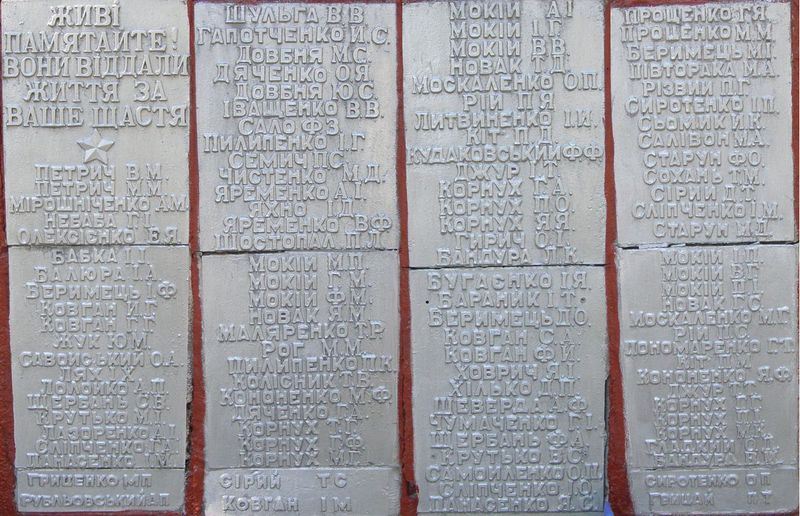 ЖИВІ
ПАМЯТАЙТЕ!
ВОНИ ВІДДАЛИ
ЖИТТЯ ЗА
ВАШЕ ЩАСТЯ
ПЕТРИЧ В.М.
ПЕТРИЧ М.М.
МІРОШНІЧЕНКО А.М.
НЕБАБА Г.І.
ОЛЕКСІЄНКО Е.Я.
БАБКА І.І.
БАЛЮРА І.А.
БЕРИМЕЦЬ І.Ф.
КОВГАН И.Г.
КОВГАН Г.Г.
ЖУК Ю.М.
САВОЙСЬКИЙ О.А.
ЛЯХ І.Х.
ПОЛОЙКО А.П.
ЩЕРБАНЬ С.В.
КРУТЬКО М.І.
ЛАЗОРЕНКО А.І.
СЛІПЧЕНКО
ПАНАСЕНКО
ГРИЦЕНКО М П
РУБЛЬОВСЬКИЙ А П
ШУЛЬГА В.В.
ГАПОТЧЕНКО И.С.
ДОВБНЯ М.С.
ДЯЧЕНКО О.Я.
ДОВБНЯ Ю.С.
ІВАЩЕНКО В.В.
САЛО Ф.З.
ПИЛИПЕНКО І.Г.
СЕМИЧ П.С.
ЧИСТЕНКО М.Д.
ЯРЕМЕНКО А.І.
ЯХНО Д.
ЯРЕМЕНКО В.Ф.
ШОСТОПАЛ П.Л.
МОКІЙ М.П.
МОКІЙ Г.М.
МОКІЙ Ф.М.
НОВАК Я.М.
МАЛЯРЕНКО Т.Р.
РОГ М.М.
ПИЛИПЕНКО П.К.
КОЛІСНИК Т.В.
КОНОНЕНКО М.Ф.
ДЯЧЕНКО Г.А.
КОРНУХ
КОРНУХ Г.Ф.
КОРНУХ М.Г.
СІРИЙ Т С
КОВГАН І М
МОКІЙ А.І.
МОКІЙ І.Г.
МОКІЙ В.В.
НОВАК Т.Д.
МОСКАЛЕНКО О.П.
РІЙ П.Я.
ЛИТВИНЕНКО І.И.
КІТ П.Д.
КУДАКОВСЬКИЙ Ф.Ф.
ДЖУР
КОРНУХ Г.А.
КОРНУХ П.О.
КОРНУХ Я.Я.
ГИРИЧ О.П.
БАНДУРА П.К.
БУГАЄНКО І.Я.
БАРАНИК І.Т.
БЕРИМЕЦЬ Д.О.
КОВГАН С.А.
КОВГАН Ф.И.
ХОВРИЧ Я.І.
ХІЛЬКО П.
ШЕВЕРДА А.Ф.
ЧУМАЧЕНКО Г.І.
ЩЕРБАНЬ Ф.А.
КРУТЬКО В.С.
САМОЙЛЕНКО О.П.
СЛІПЧЕНКО І.Ю.
ПАНАСЕНКО Я.С.
ПРОЩЕНКО Г.Я.
ПРОЩЕНКО М.М.
БЕРИМЕЦЬ М.І.
ПІВТОРАКА М.А.
РІЗВИЙ П.Г.
СИРОТЕНКО І.П.
СЬОМИК И.К.
САЛІВОН М.А.
СТАРУН Ф.О.
СОХАНЬ Т.М.
СІРИЙ Д.Т.
СЛІПЧЕНКО І.М.
СТАРУН М.Д.
МОКІЙ І.П.
МОКІЙ В.Г.
МОКІЙ П.І.
НОВАК Г.С.
МОСКАЛЕНКО М.Г.
РІЙ П.С.
ПОНОМАРЕНКО Г.Т.
КОНОНЕНКО Я.Ф.
ДЖУР
КОРНУХ
КОРНУХ
КОРНУХ
ГЛАДКИЙ
БАНДУРА
СИРОТЕНКО О П
ГРИЦАЙ П Т